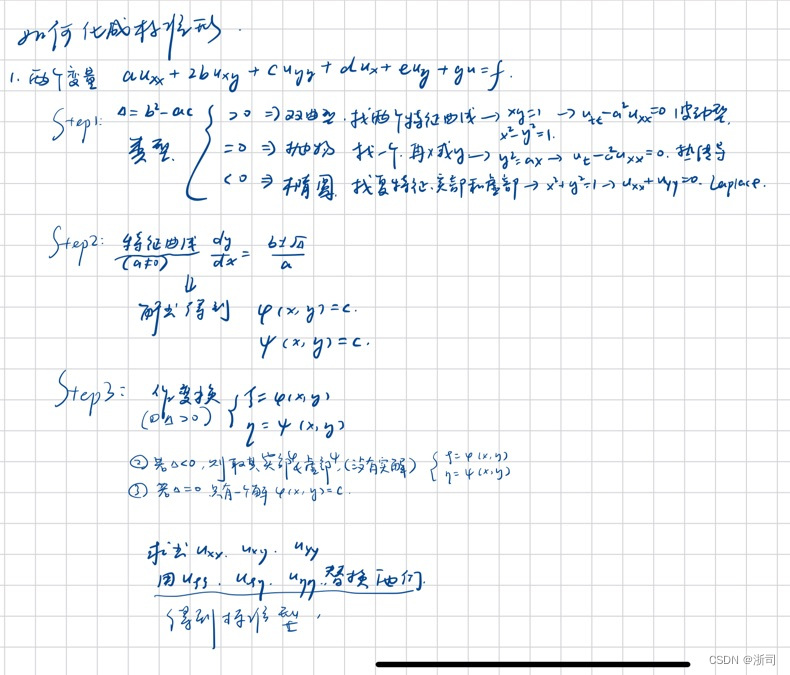 如何化成标准形.
1. 两个变量 auxx + 2buxy + cuyy + dux + euy + gu = f.
Step1: Δ = b²-ac
类型
>0 ⇒ 双曲型. 找两个特征曲线 → xy=1 → utt-a²uxx=0 波动型.
x²-y²=1.
=0 ⇒ 抛物 找一个. 再x或y → y²=ax → ut-a²uxx=0. 热传导
<0 ⇒ 椭圆 找复特征.实部和虚部 → x²+y²=1 → uxx+uyy=0. Laplace.
Step2: 特征曲线 dy/dx = b±√Δ/a
(a≠0)
↓
解出得到 φ(x,y)=c.
ψ(x,y)=c.
Step3: 作变换 { ξ=φ(x,y)
(①Δ>0) η=ψ(x,y)
② 若Δ<0, 则取其实部φ虚部ψ.(没有实解) { ξ=φ(x,y)
η=ψ(x,y)
③ 若Δ=0 只有一个解 φ(x,y)=c.
求出 uxx. uxy. uyy
用uξξ. uξη. uηη.替换它们.
得到标准型.
CSDN @浙司